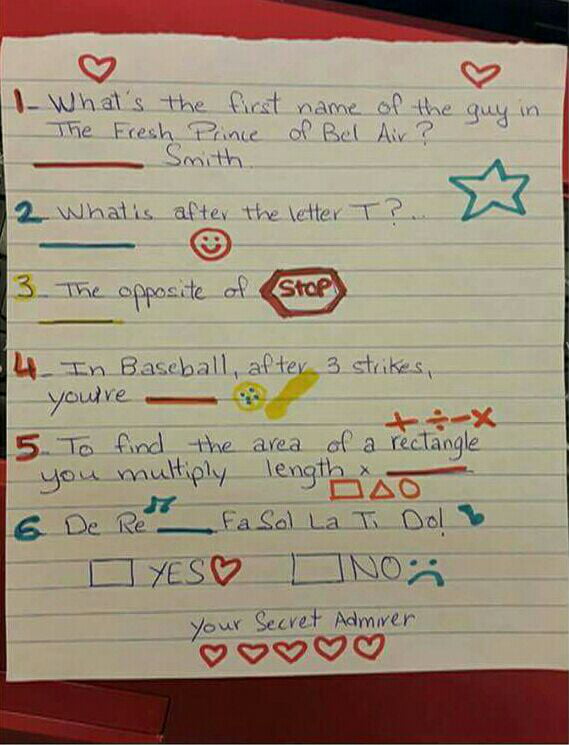 1- What's the first name of the guy in
The Fresh Prince of Bel Air?
Smith.
2 What is after the letter T?..
3- The opposite of STOP
4- In Baseball, after 3 strikes,
you're
+ ÷ - ×
5- To find the area of a rectangle
you multiply length x
6 De Re Fa Sol La Ti Do!
YES NO
Your Secret Admirer